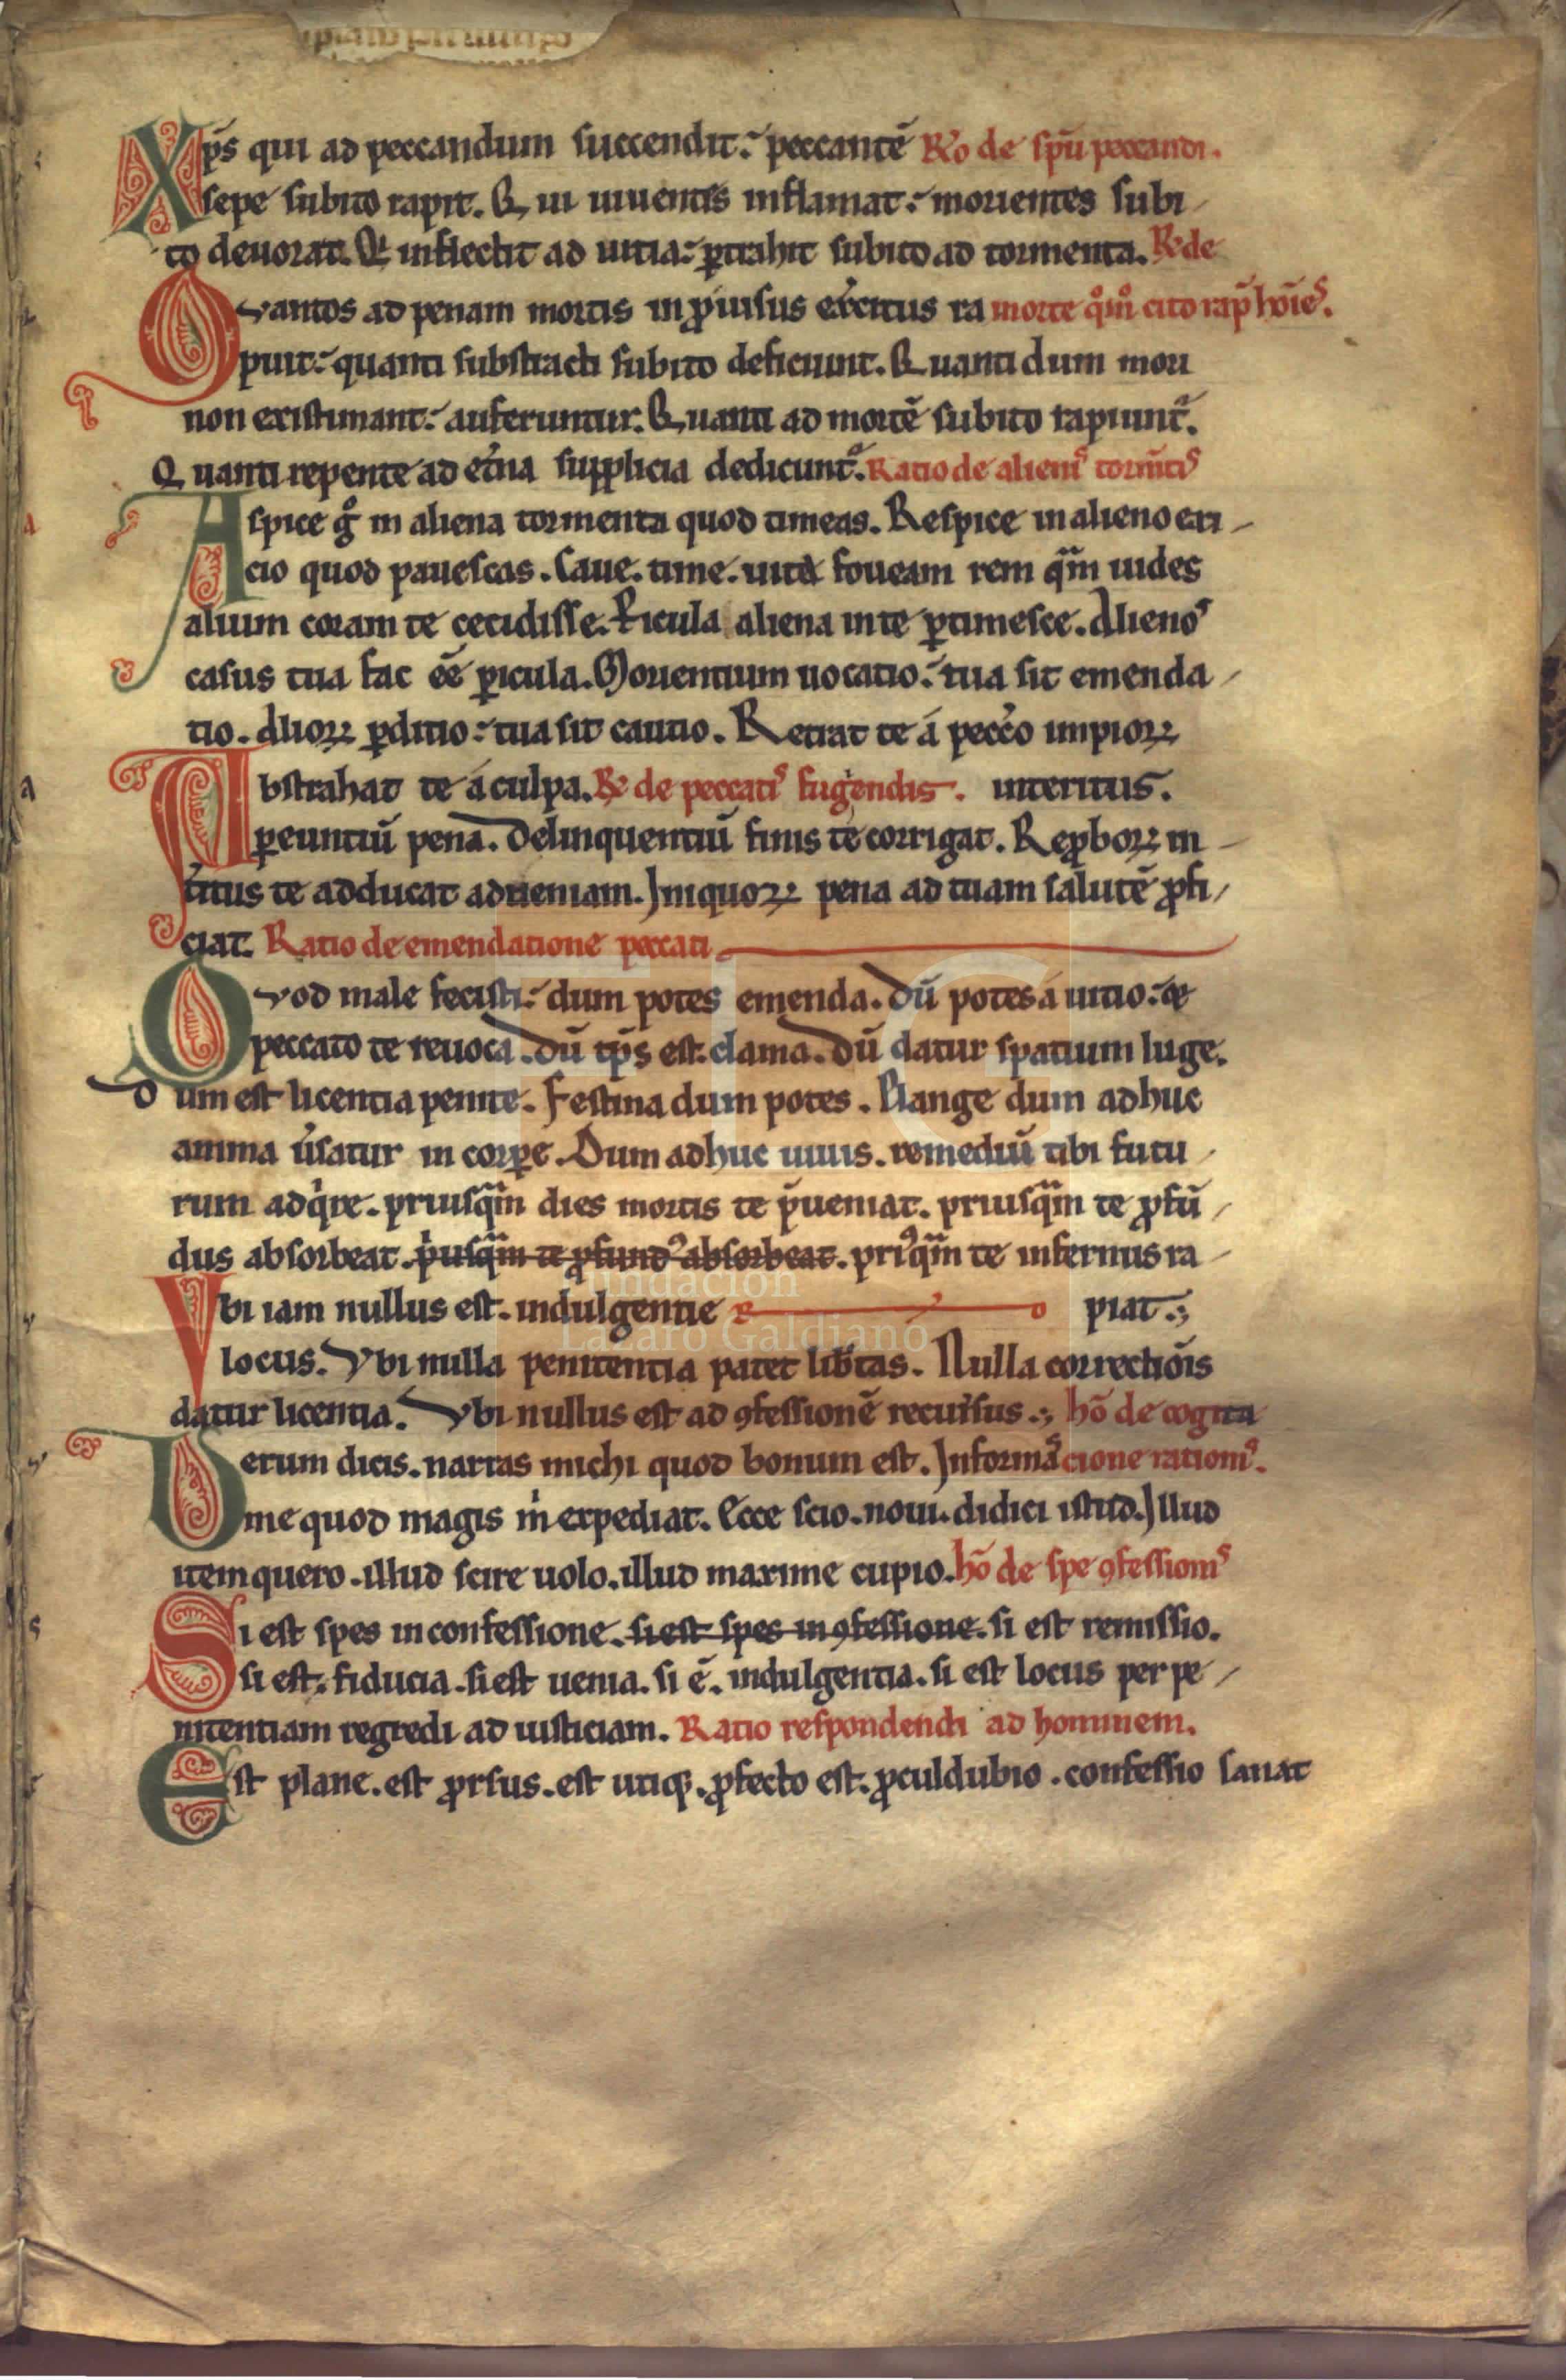 Xp̄s qui ad peccandum succendit. peccantē Rͦo de sp̄u peccandi.
sepe subito rapit. Qui uiuentes inflamat. morientes subi
to deuorat. Qi inflectit ad uitia. ꝑtrahit subito ad tormenta. R̄ de
Qvantos ad penam mortis inꝓuisus exitus ra morte qͦmͦ cito rap̄ hoīes.
puit. quanti substracti subito deficiunt. Quanti dum mori
non existimant. auferuntur. Quanti ad mortē subito rapiunt᷑.
Quanti repente ad et̓na supplicia dedicunt᷑. Ratio de alienis torm̄tis
Aspice gͦ in aliena tormenta quod timeas. Respice in alieno exi
cio quod pauescas. Caue. time. uita foueam rem qͣm uides
alium coram te cecidisse. Ꝑicula aliena in te ꝑtimesce. Alienos
casus tua fac eē ꝑicula. Morientium uocatio. tua sit emenda
tio. Alioꝝ ꝑditio. tua sit cautio. Retrat te á pecc̓o impioꝝ
Abstrahat te á culpa. R̄ de peccatis fugendis. interitus.
ꝑeuntiū pena. Delinquentiū finis te corrigat. Reꝓboꝝ in
t̓itus te adducat ad ueniam. Iniquoꝝ pena ad tuam salutē ꝓfi
ciat. Ratio de emendatione peccati
Qvod male fecisti. dum potes emenda. dū potes á uitio. et
peccato te reuoca. dū tp̄s est. clama. dū datur spatium luge.
Dum est licentia penite. Festina dum potes. Plange dum adhuc
anima u̓satur in corꝑe. Dum adhuc uiuis. remediū tibi futu
rum adqͥre. priusqͣm dies mortis te p̄ueniat. priusqͣm te ꝓfū
dus absorbeat. pͥusqͣm te ꝓfundꝰ absorbeat. priꝰqͣm te infernus ra
Vbi iam nullus est. indulgentie piat.
locus. Vbi nulla penitentia patet lib̓tas. Nulla correctiōis
datur licentia. Vbi nullus est ad ꝯfessionē recursus. hō de cogita
Verum dicis. narras michi quod bonum est. Informas cione rationis.
me quod magis mͥ expediat. Ecce scio. noui. didici istud. Illud
item quero. illud scire uolo. illud maxime cupio. hō de spe ꝯfessionis
Si est spes in confessione. si est spes in ꝯfessione. si est remissio.
si est. fiducia. si est uenia. si ē. indulgentia. si est locus per pe
nitentiam regredi ad iusticiam. Ratio respondendi ad hominem.
Est plane. est ꝓrsus. est utiqꝫ. ꝓfecto est. ꝓculdubio. confessio sanat
Fundación
Lázaro Galdiano